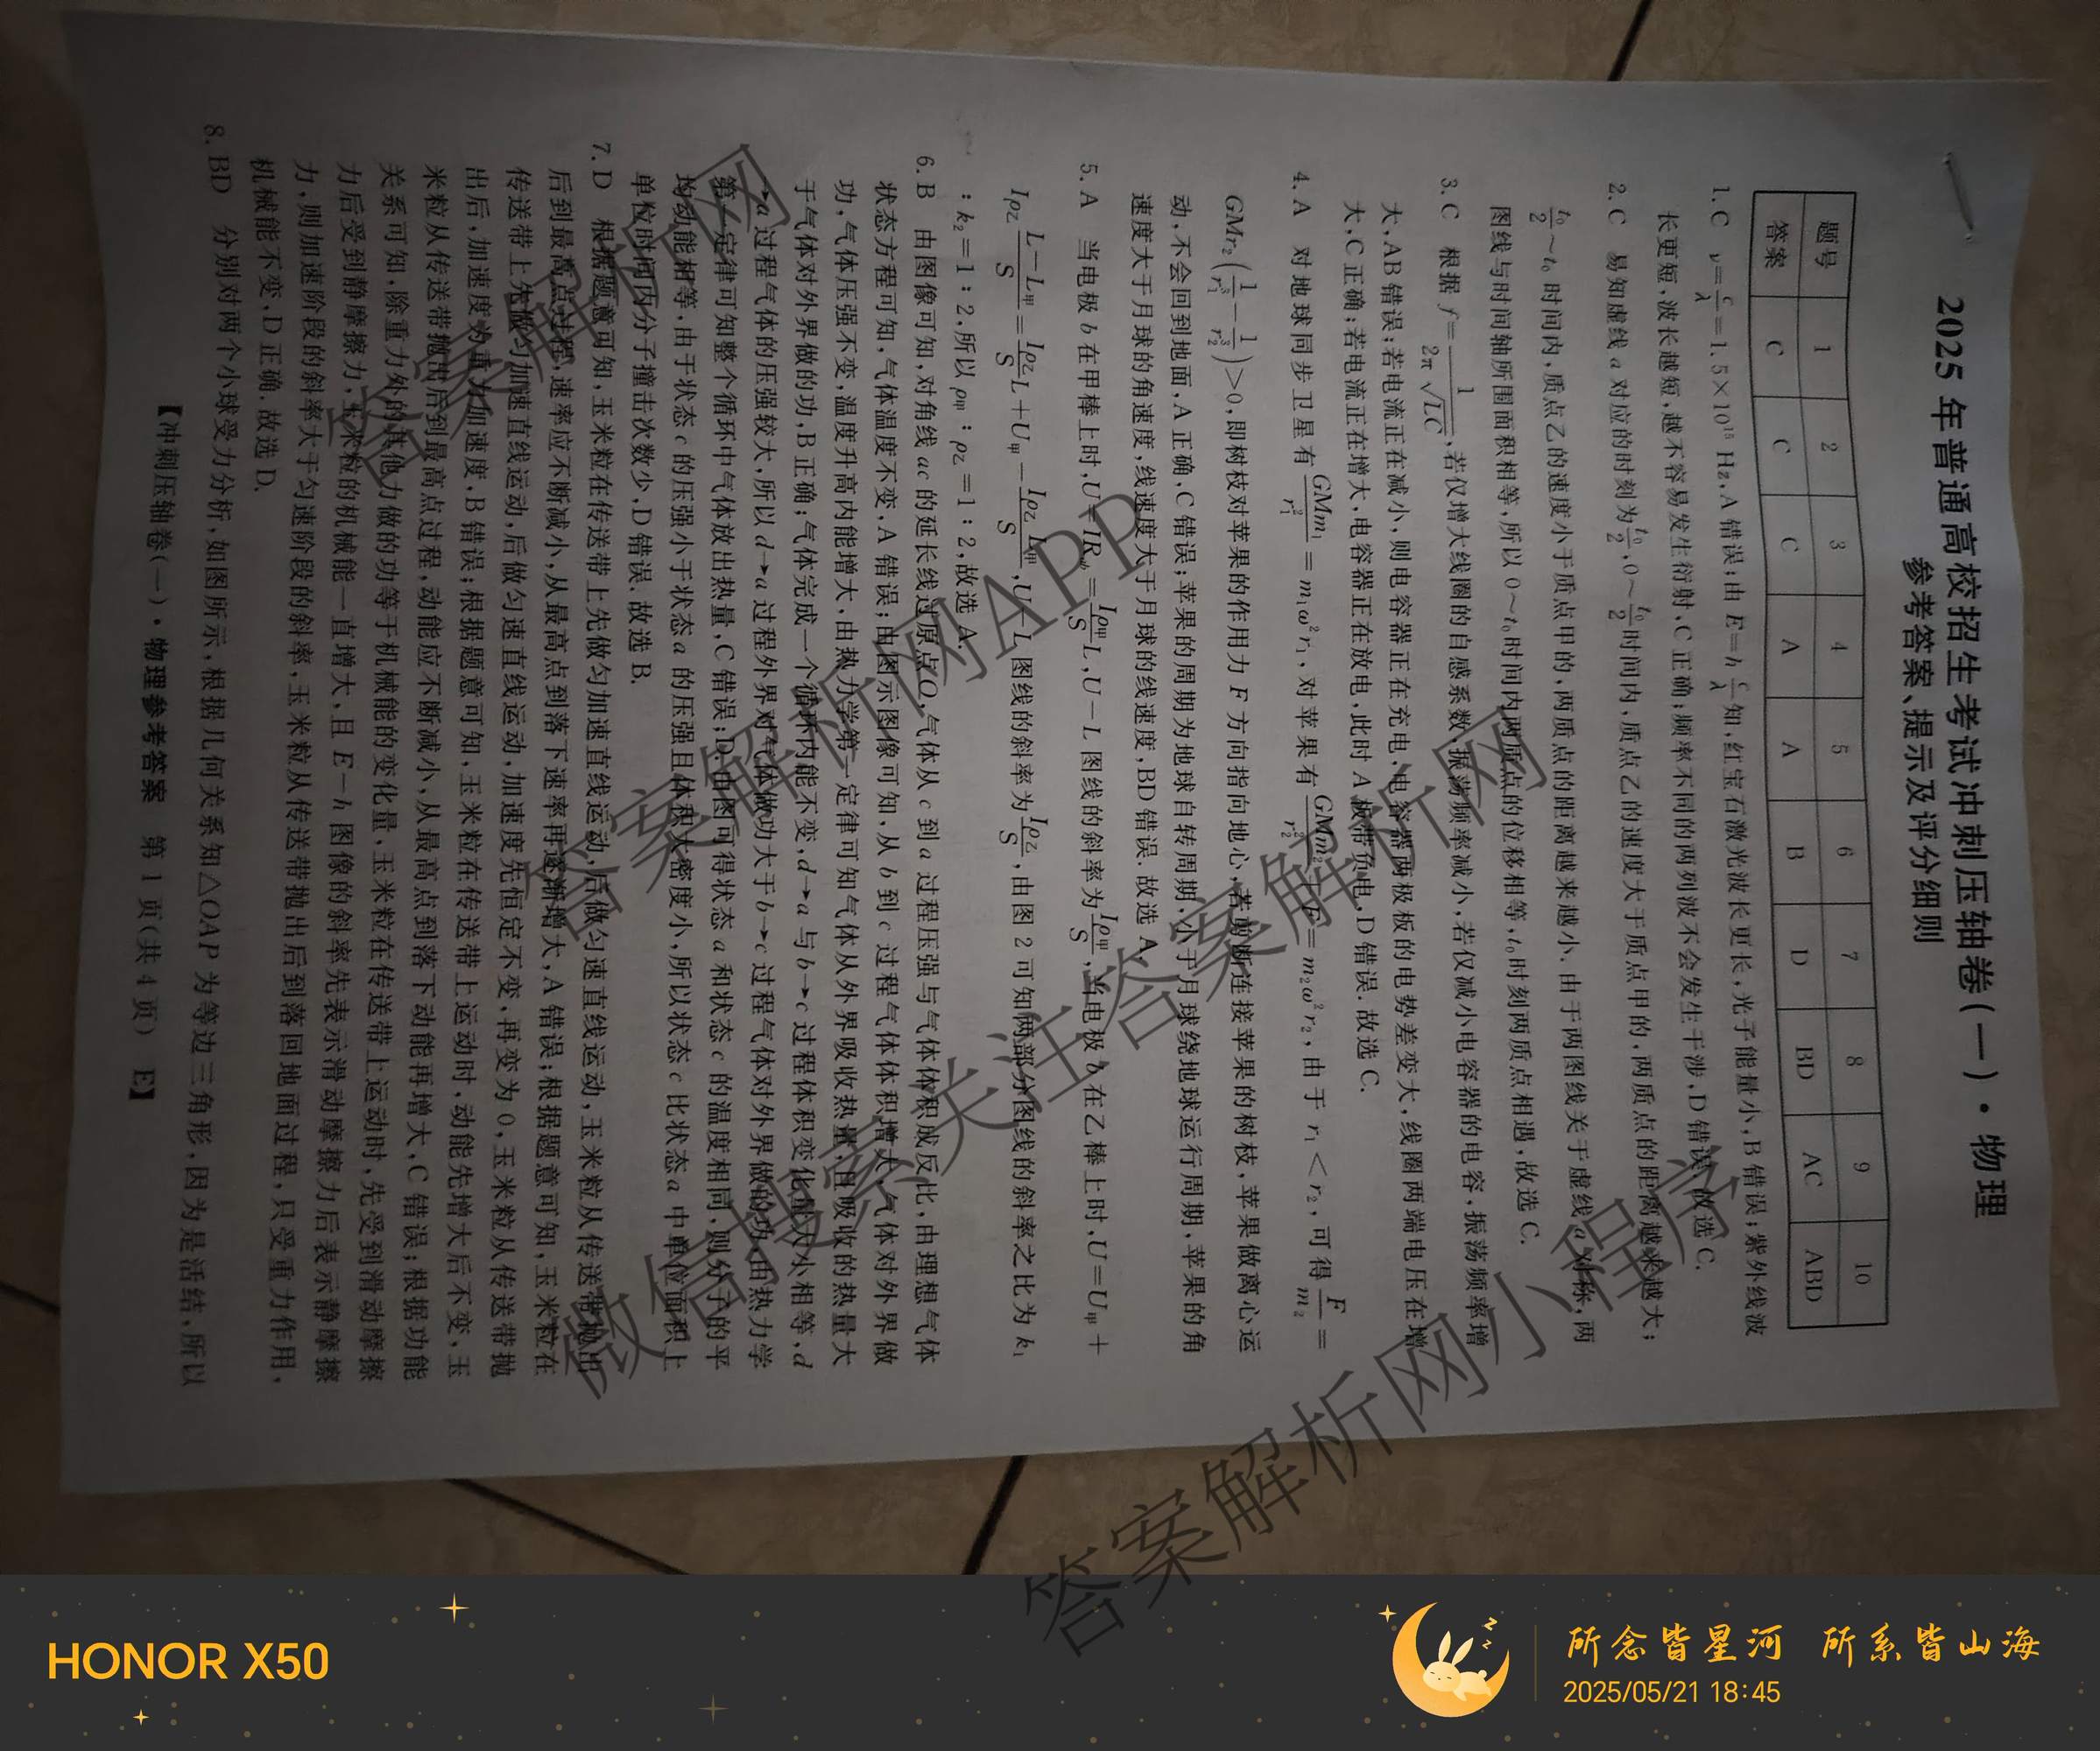 2025年普通高校招生考试冲刺压轴卷(一)·物理
参考答案、提示及评分细则
题号 1 2 3 4 5 6 7 8 9 10
答案 C C C A A B D BD AC ABD
1.C ν=c/λ=1.5×10¹⁵ Hz,A错误;由E=h c/λ知,红宝石激光波长更长,光子能量小,B错误;紫外线波
长更短,波长越短,越不容易发生衍射,C正确;频率不同的两列波不会发生干涉,D错误.故选C.
2.C 易知虚线a对应的时刻为t₀/2,0~t₀/2时间内,质点乙的速度大于质点甲的,两质点的距离越来越大;
t₀/2~t₀时间内,质点乙的速度小于质点甲的,两质点的距离越来越小.由于两图线关于虚线a对称,两
图线与时间轴所围面积相等,所以0~t₀时间内两质点的位移相等,t₀时刻两质点相遇,故选C.
3.C 根据f=1/(2π√LC),若仅增大线圈的自感系数,振荡频率减小,若仅减小电容器的电容,振荡频率增
大,AB错误;若电流正在减小,则电容器正在充电,电容器两极板的电势差变大,线圈两端电压在增
大,C正确;若电流正在增大,电容器正在放电,此时A极带负电,D错误.故选C.
4.A 对地球同步卫星有GMm₁/r₁²=m₁ω²r₁,对苹果有GMm₂/r₂²+F=m₂ω²r₂,由于r₁<r₂,可得F/m₂=
GMr₂(1/r₁³-1/r₂³)>0,即树枝对苹果的作用力F方向指向地心,若剪断连接苹果的树枝,苹果做离心运
动,不会回到地面,A正确,C错误;苹果的周期为地球自转周期,小于月球绕地球运行周期,苹果的角
速度大于月球的角速度,线速度大于月球的线速度,BD错误.故选A.
5.A 当电极b在甲棒上时,U=IR=Iρ甲/S L,U-L图线的斜率为Iρ甲/S,当电极b在乙棒上时,U=U甲+
Iρ乙 (L-L甲)/S=Iρ乙/S L+U甲-Iρ乙L甲/S,U-L图线的斜率为Iρ乙/S,由图2可知两部分图线的斜率之比为k₁
:k₂=1:2,所以ρ甲:ρ乙=1:2,故选A.
6.B 由图像可知,对角线ac的延长线过原点O,气体从c到a过程压强与气体体积成反比,由理想气体
状态方程可知,气体温度不变,A错误;由图示图像可知,从b到c过程气体体积增大,气体对外界做
功,气体压强不变,温度升高内能增大,由热力学第一定律可知气体从外界吸收热量,且吸收的热量大
于气体对外界做的功,B正确;气体完成一个循环内能不变,d→a与b→c过程体积变化量大小相等,d
→a过程气体的压强较大,所以d→a过程外界对气体做功大于b→c过程气体对外界做的功,由热力学
第一定律可知整个循环中气体放出热量,C错误;由图可得状态a和状态c的温度相同,则分子的平
均动能相等,由于状态c的压强小于状态a的压强且体积大密度小,所以状态c比状态a中单位面积上
单位时间内分子撞击次数少,D错误.故选B.
7.D 根据题意可知,玉米粒在传送带上先做匀加速直线运动,后做匀速直线运动,玉米粒从传送带抛出
后到最高点过程,速率应不断减小,从最高点到落下速率再逐渐增大,A错误;根据题意可知,玉米粒在
传送带上先做匀加速直线运动,后做匀速直线运动,加速度先恒定不变,再变为0,玉米粒从传送带抛
出后,加速度为重力加速度,B错误;根据题意可知,玉米粒在传送带上运动时,动能先增大后不变,玉
米粒从传送带抛出后到最高点过程,动能应不断减小,从最高点到落下动能再增大,C错误;根据功能
关系可知,除重力外的其他力做的功等于机械能的变化量,玉米粒在传送带上运动时,先受到滑动摩擦
力后受到静摩擦力,玉米粒的机械能一直增大,且E-h图像的斜率先表示滑动摩擦力后表示静摩擦
力,则加速阶段的斜率大于匀速阶段的斜率,玉米粒从传送带抛出后到落回地面过程,只受重力作用,
机械能不变,D正确.故选D.
8.BD 分别对两个小球受力分析,如图所示,根据几何关系知△OAP为等边三角形,因为是活结,所以
【冲刺压轴卷(一)·物理参考答案 第1页(共4页) E】
答案解析网
答案解析网APP
微信搜索关注答案解析网
答案解析网小程序
HONOR X50
所念皆星河 所系皆山海
2025/05/21 18:45